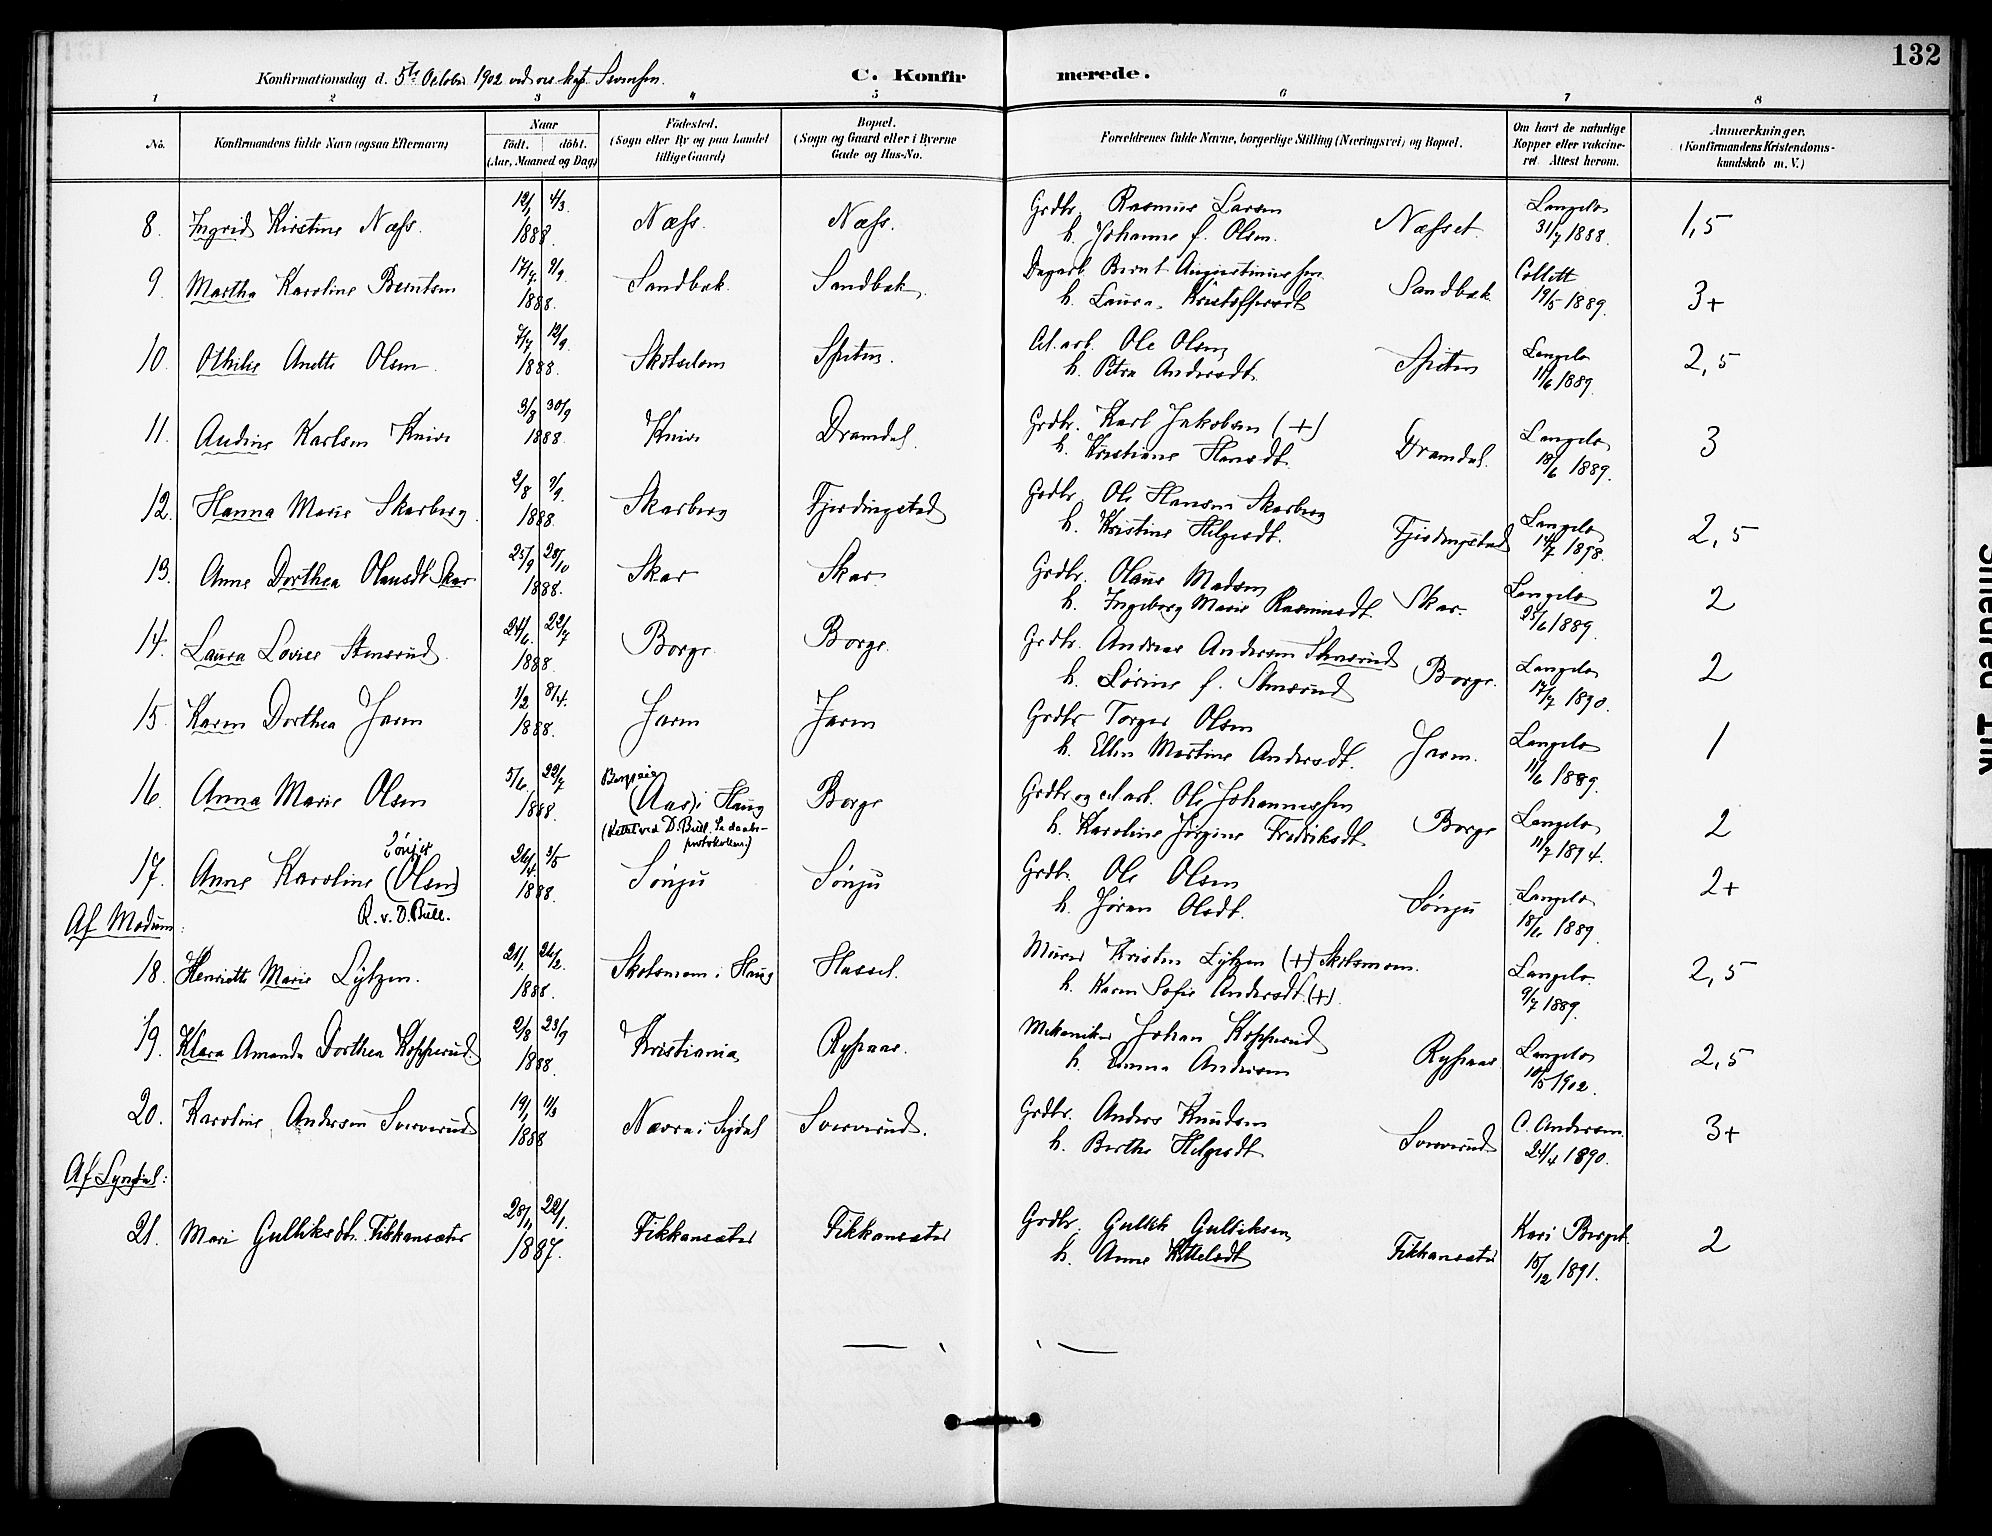 132
Konfirmationsdag d. 5te October 1902 ved res. kap. Svensen.
C. Konfirmerede.
1 2 3 4 5 6 7 8
No.
Konfirmandens fulde Navn (ogsaa Efternavn)
Naar
födt. döbt.
(Aar, Maaned og Dag)
Födested.
(Sogn eller By og paa Landet
tillige Gaard)
Bopæl.
(Sogn og Gaard eller i Byerne
Gade og Hus-No.
Forældrenes fulde Navne, borgerlige Stilling (Næringsvei) og Bopæl.
Om havt de naturlige
Kopper eller vaccine-
ret. Attest herom.
Anmærkninger.
(Konfirmandens Kristendoms-
kundskab m. V.)
8. Ingrid Kirstine Næss. 12/1 4/3 1888. Næss. Næss. Grdbr. Rasmus Larsen
h. Johanne f. Olsen. Næsset. Langelo 31/7 1888. 1,5
9. Martha Karoline Berntsen 17/7 9/9 1888. Sandbak. Sandbak. Dagarb. Bernt Augustinussen
h. Laura Kristoffersdt Sandbak Collett 19/5 1889. 3+
10. Othilie Anette Olsen. 7/7 12/9 1888. Skotselven Spiten. Ole Olsen
h. Petra Andersdt. Spiten Langelo 11/6 1889. 2,5
11. Andine Karlsen Knive 3/8 30/9 1888. Knive Dramdal. Grdbr. Karl Jakobsen (+)
h. Kristiane Hansdt. Dramdal. Langelo 18/6 1889. 3
12. Hanna Marie Skarberg. 2/8 9/9 1888. Skarberg Fjerdingstad Grdbr. Ole Hansen Skarberg
h. Kristine Helgesdt. Fjerdingstad Langelo 14/7 1898. 2,5
13. Anne Dorthea Olausdt. Skar 25/9 28/10 1888. Skar Skar Grdbr. Olaus Madsen
h. Ingeborg Marie Rasmusdt. Skar. Langelo 25/6 1889. 2
14. Laura Lovise Stensrud. 24/6 22/7 1888. Borge. Borge. Grdbr. Andreas Andersen Stensrud
h. Lorine f. Stensrud Borge. Langelo 17/7 1890. 2
15. Karen Dorthea Jaren 1/2 8/4. 1888. Jaren Jaren Grdbr Torger Olsen
h. Ellen Martine Andersdt. Jaren. Langelo 11/6 1889. 1
16. Anna Marie Olsen 5/6. 22/7 1888. (Aas) i Haug Borge Grdbr og Ole Johannessen
(Rettet ved D. Bull. Se daabs-
protokollen.)
h. Karoline Jørgine Fredriksdt Borge Langelo 11/7 1894. 2
Sønju
17. Anne Karoline (Olsen) 26/4. 3/5 1888. Sønju Sønju Grdbr. Ole Olsen
R. v. D. Bull.
h. Jøran Olsdt. Sønju Langelo 18/6 1889. 2+
Af Modum:
18. Henriette Marie Lytzen. 21/1. 26/2. 1888. Skotsmoen i Haug Hassel. Murer Kristen Lytzen (+) Skotsmoen.
h. Karen Sofie Andersdt. (+). Langelo. 9/7 1889. 2,5
19. Klara Amanda Dorthea Kopperud. 2/8 23/9 1888. Kristiania Ryssaas. Mekaniker Johan Kopperud
h. Emma Andersen Ryssaas Langelo 10/5 1902. 2,5
20. Karoline Andersen Sververud 19/1 11/3 1888 Narve i Sigdal Sververud. Grdbr. Anders Knudsen
h. Berthe Helgesdt Sververud C. Andersen. 24/4 1890. 3+
Af Lyngdal:
21. Mari Gulliksdt. Fikkansæter 28/1 22/1. 1887. Fikkansæter Fikkansæter Grdbr. Gullik Gulliksen
h. Anne Kittelsdt Fikkansæter Kari Berget. 15/12 1891. 2